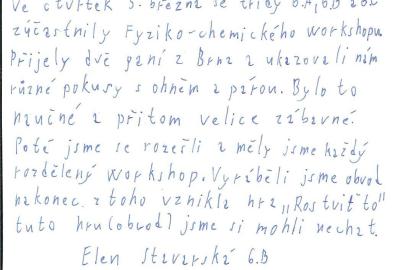 Ve čtvrtek 5. března se třídy 6.A, 6.B
zúčastnily Fyziko-chemického workshopu
Přijely dvě paní z Brna a ukazovali nám
různé pokusy s ohněm a párou. Bylo to
naučné a přitom velice zábavné.
Poté jsme se rozešli a měly jsme každý
rozdělený workshop. Vyráběli jsme obvod
nakonec z toho vznikla hra „Rostviť to"
tuto hru (obvod) jsme si mohli nechat.
Elen Stavarská 6.B